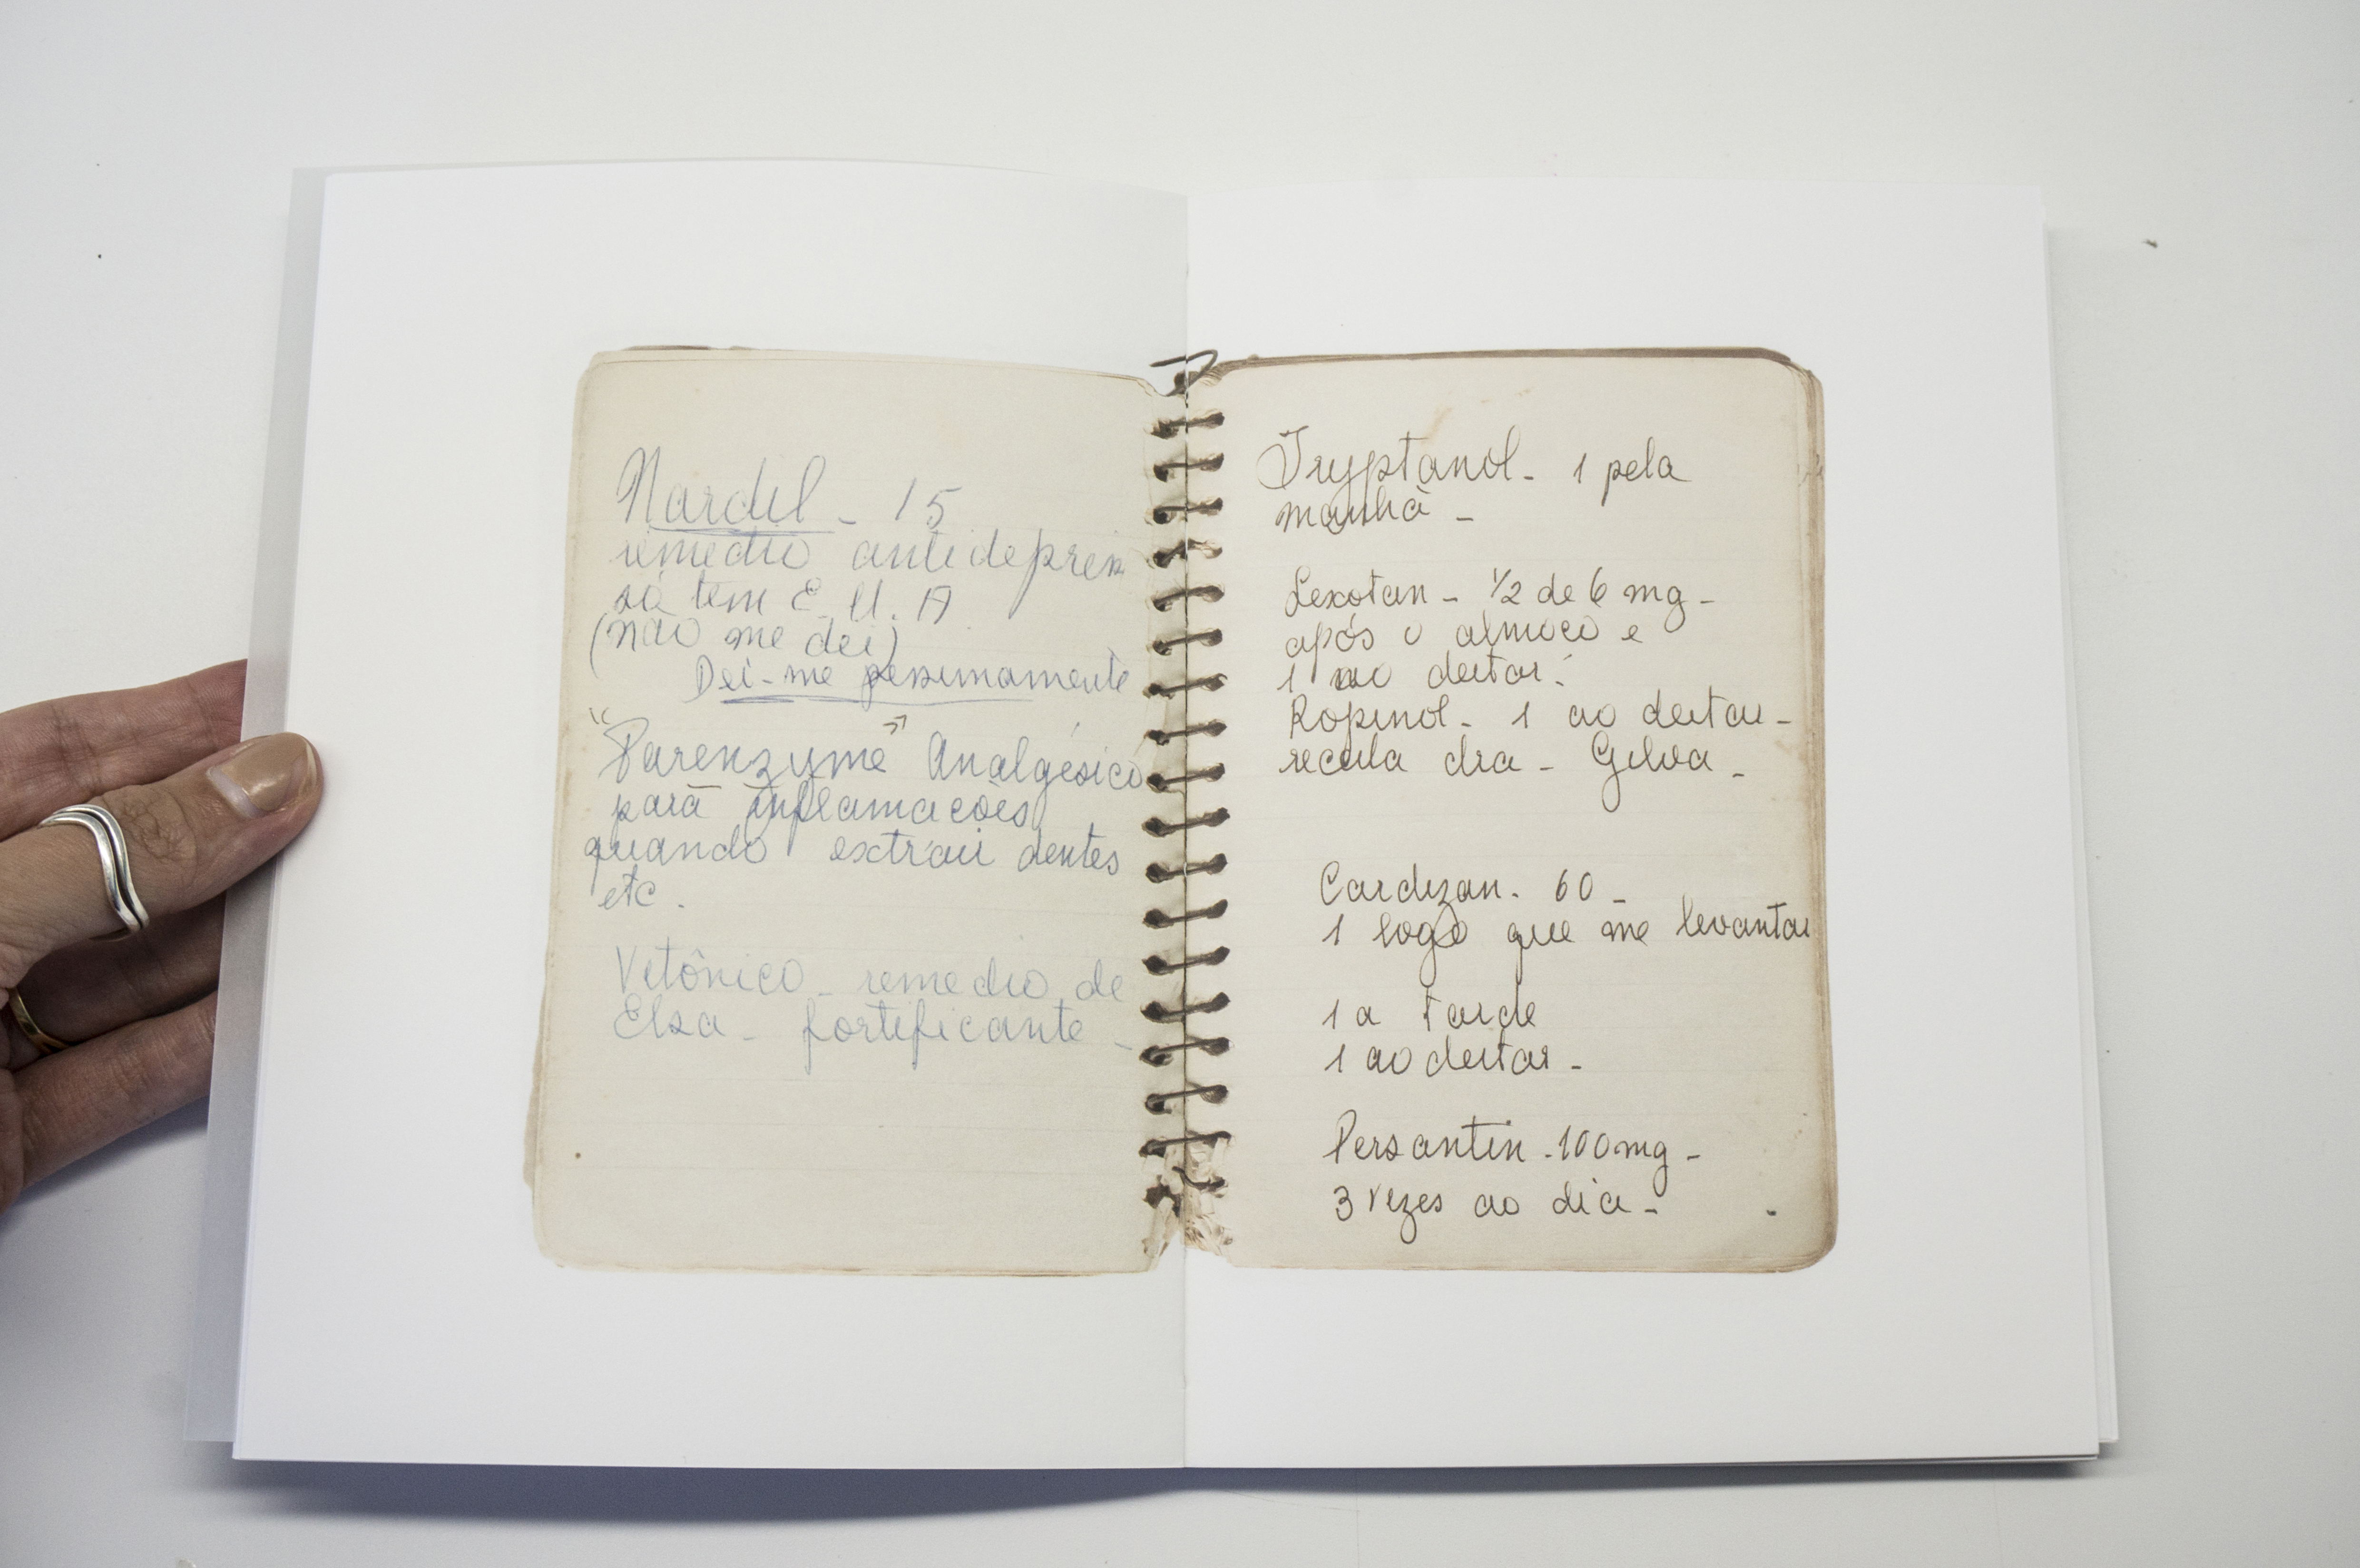 Nardil - 15
remedio antidepress
só tem E. U. A
(não me dei)
Dei-me pessimamente
"Parenzyme" Analgésico
para inflamações
quando extrair dentes
etc.
Vitônico - remedio de
Elza - fortificante -
Tryptanol - 1 pela
manhã -
Lexotan - 1/2 de 6 mg -
após o almoço e
1 ao deitar.
Ropinol - 1 ao deitar -
receita dra - Gilva -
Cardizan - 60 -
1 logo que me levantar
1 a tarde
1 ao deitar -
Persantin - 100 mg -
3 vezes ao dia -